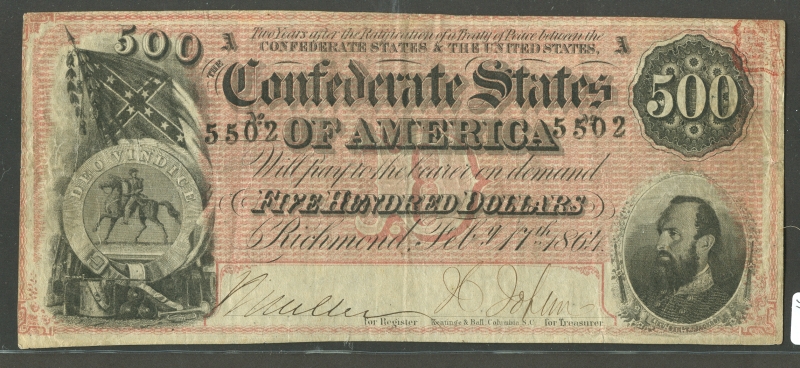 500 A Two Years after the Ratification of a Treaty of Peace between the A
CONFEDERATE STATES & THE UNITED STATES,
THE
Confederate States
500
No 5502 No 5502
OF AMERICA
DEO VINDICE
Will pay to the bearer on demand
FIVE HUNDRED DOLLARS
Richmond, Feby. 17th. 1864
for Register Keatinge & Ball, Columbia, S.C. for Treasurer